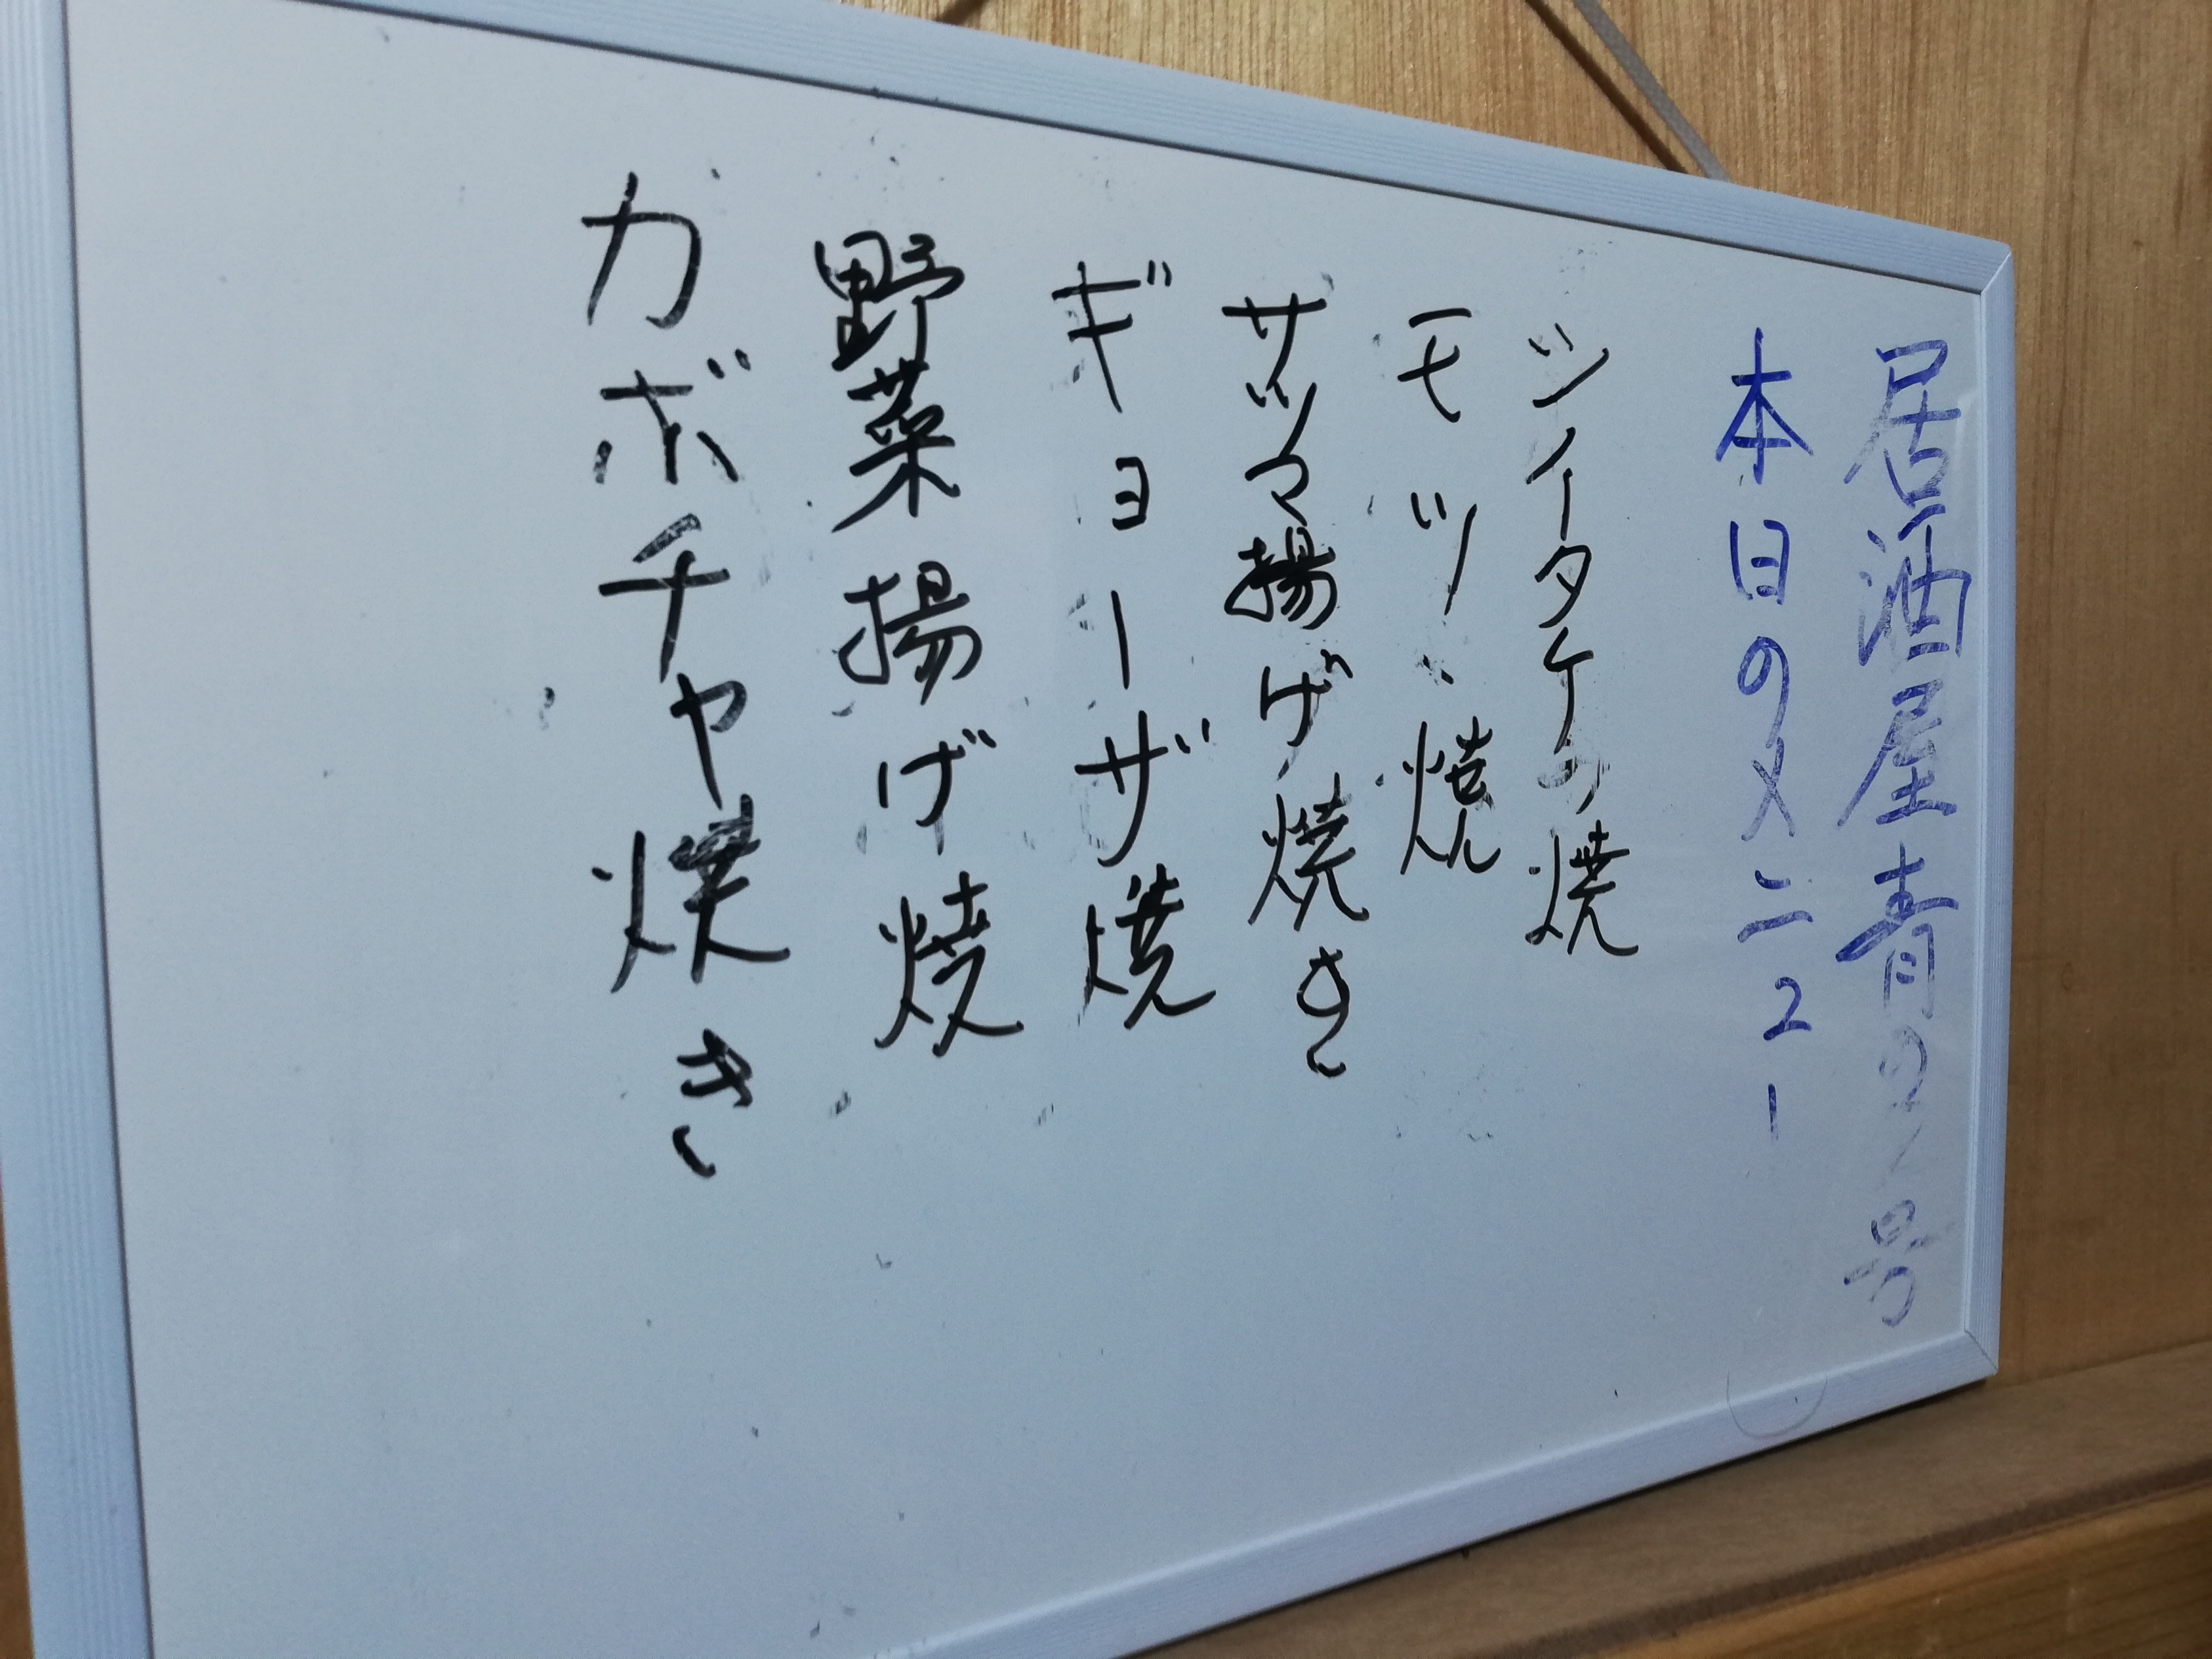 居酒屋青2号
本日のメニュー
シイタケ焼
モツ焼
サツマ揚げ焼き
ギョーザ焼
野菜揚げ焼
カボチャ焼き